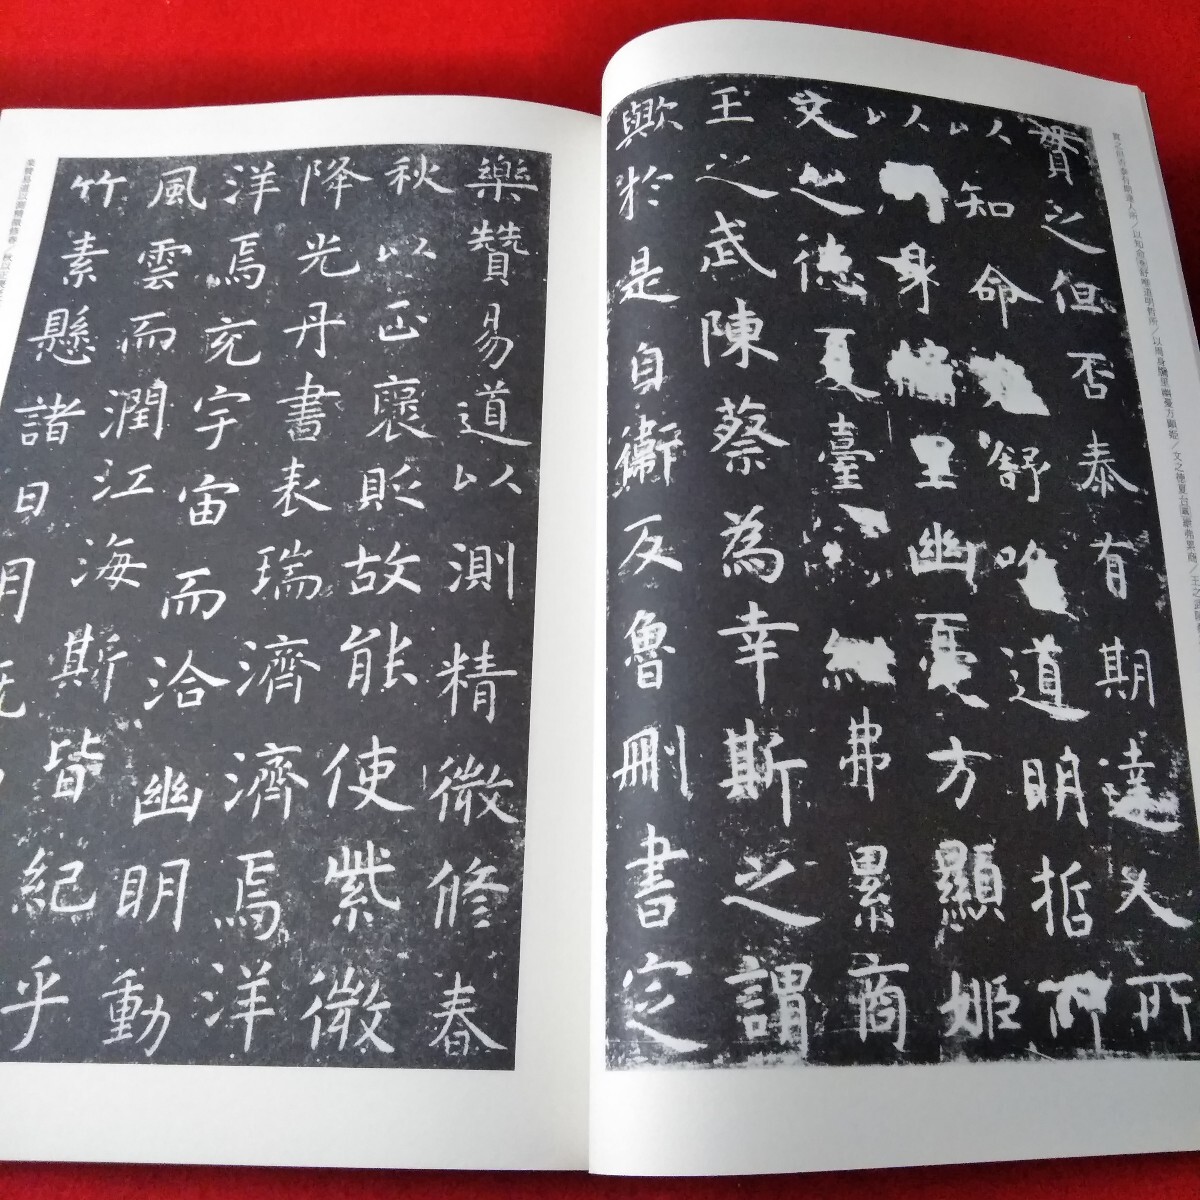 賢之但否泰有期達人所
以知命舒唯道明哲所
以身牖里幽憂方顯姬
文之德夏臺紲弗累商
王之武陳蔡為幸斯之謂
歟於是自衛反魯刪書定
樂贊易道以測精微修春
秋以正褒貶故能使紫微
降光丹書表瑞濟濟焉洋
洋焉充宇宙而洽幽明動
風雲而潤江海斯皆紀乎
竹素懸諸日月既